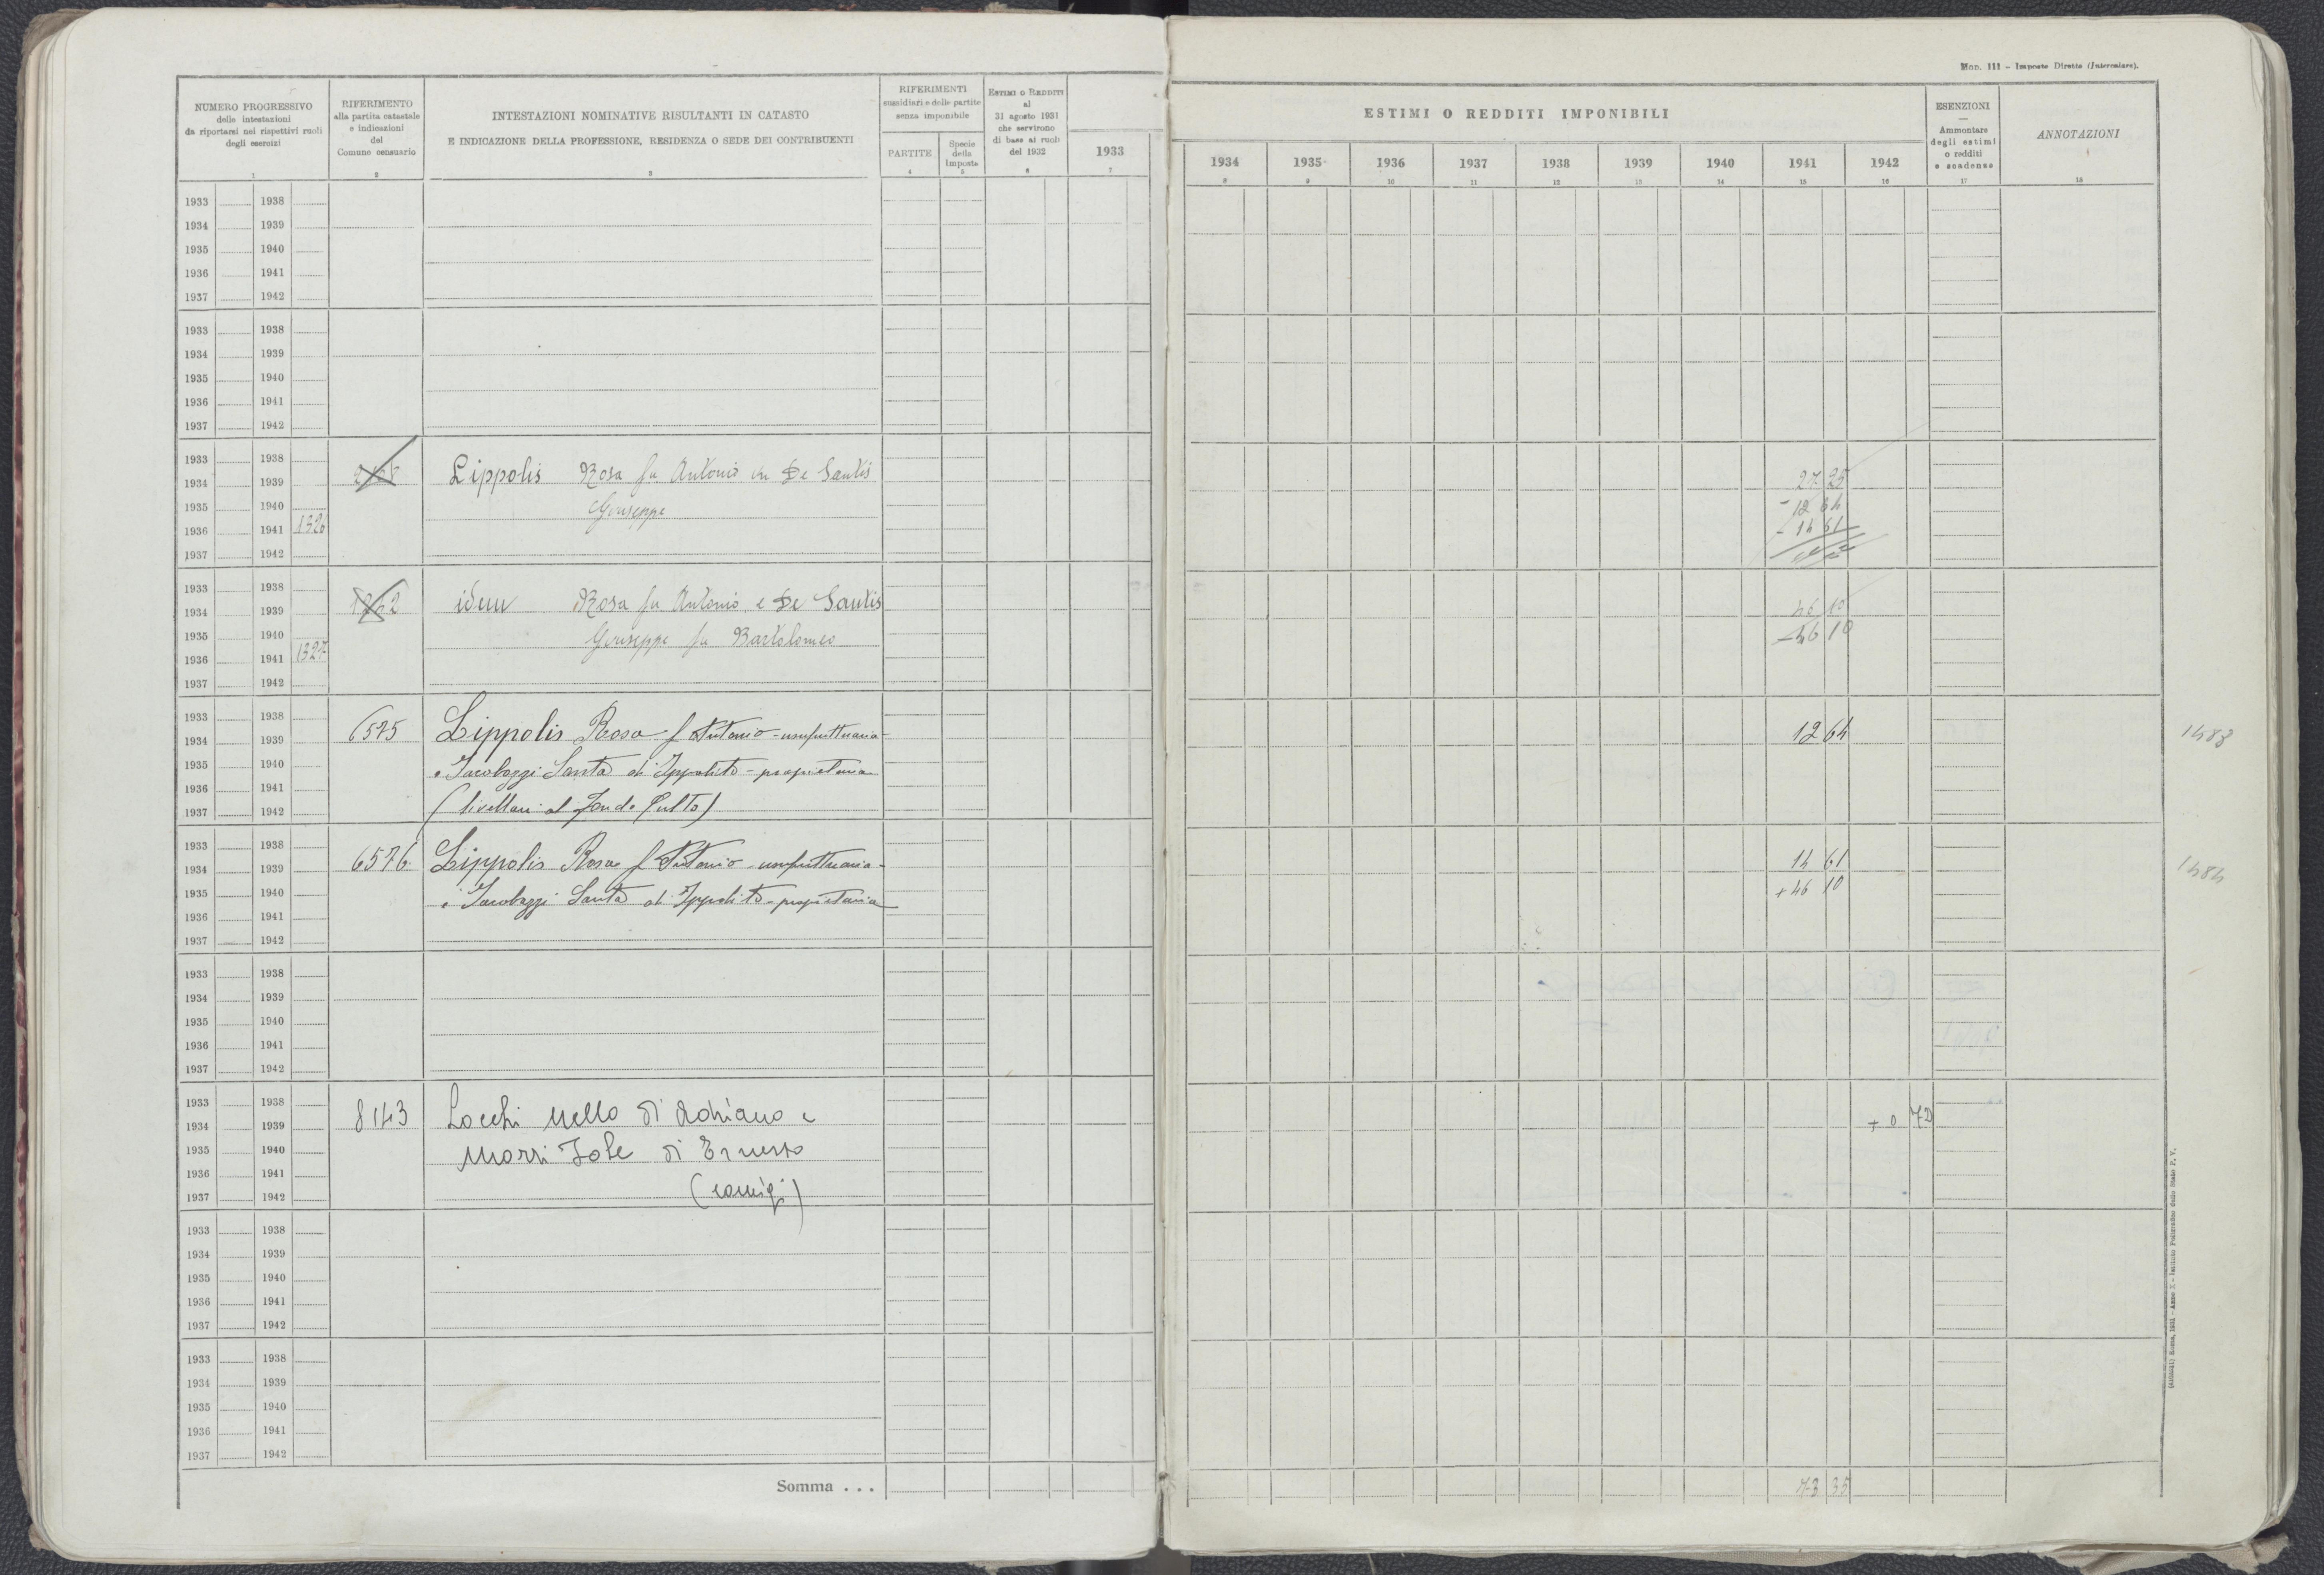 Mod. 111 – Imposte Dirette (Intercalare).
NUMERO PROGRESSIVO
delle intestazioni
da riportarsi nei rispettivi ruoli
degli esercizi
1
RIFERIMENTO
alla partita catastale
e indicazioni
del
Comune censuario
2
INTESTAZIONI NOMINATIVE RISULTANTI IN CATASTO
E INDICAZIONE DELLA PROFESSIONE, RESIDENZA O SEDE DEI CONTRIBUENTI
3
RIFERIMENTI
sussidiari e delle partite
senza imponibile
PARTITE
4
Specie
della
Imposta
5
ESTIMI O REDDITI
al
31 agosto 1931
che servirono
di base ai ruoli
del 1932
6
1933
7
ESTIMI O REDDITI IMPONIBILI
1934 1935 1936 1937 1938 1939 1940 1941 1942
8 9 10 11 12 13 14 15 16
ESENZIONI
—
Ammontare
degli estimi
o redditi
e scadenze
17
ANNOTAZIONI
18
1933 1938
1934 1939
1935 1940
1936 1941
1937 1942
1933 1938
1934 1939
1935 1940
1936 1941
1937 1942
1933 1938
1934 1939 Lippolis Rosa fu Antonio in De Santis 27 25
1935 1940 Giuseppe - 12 64
1936 1941 1326 - 14 61
1937 1942
1933 1938
1934 1939 idem Rosa fu Antonio e De Santis 46 10
1935 1940 Giuseppe fu Bartolomeo - 46 10
1936 1941 1327
1937 1942
1933 1938
1934 1939 6575 Lippolis Rosa f Antonio - usufruttuaria - 12 64 1483
1935 1940 e Jacobazzi Santa di Ippolito - proprietaria
1936 1941
1937 1942 (livellari al Fondo Culto)
1933 1938
1934 1939 6576 Lippolis Rosa f Antonio - usufruttuaria - 14 61 1484
1935 1940 e Jacobazzi Santa di Ippolito - proprietaria + 46 10
1936 1941
1937 1942
1933 1938
1934 1939
1935 1940
1936 1941
1937 1942
1933 1938
1934 1939 8143 Locchi Nello di Adriano e + 0 72
1935 1940 Morri Jole di Ernesto
1936 1941
1937 1942 (coniugi)
1933 1938
1934 1939
1935 1940
1936 1941
1937 1942
1933 1938
1934 1939
1935 1940
1936 1941
1937 1942
Somma . . . 73 35
Roma, 1931 - Anno X - Istituto Poligrafico dello Stato P. V.